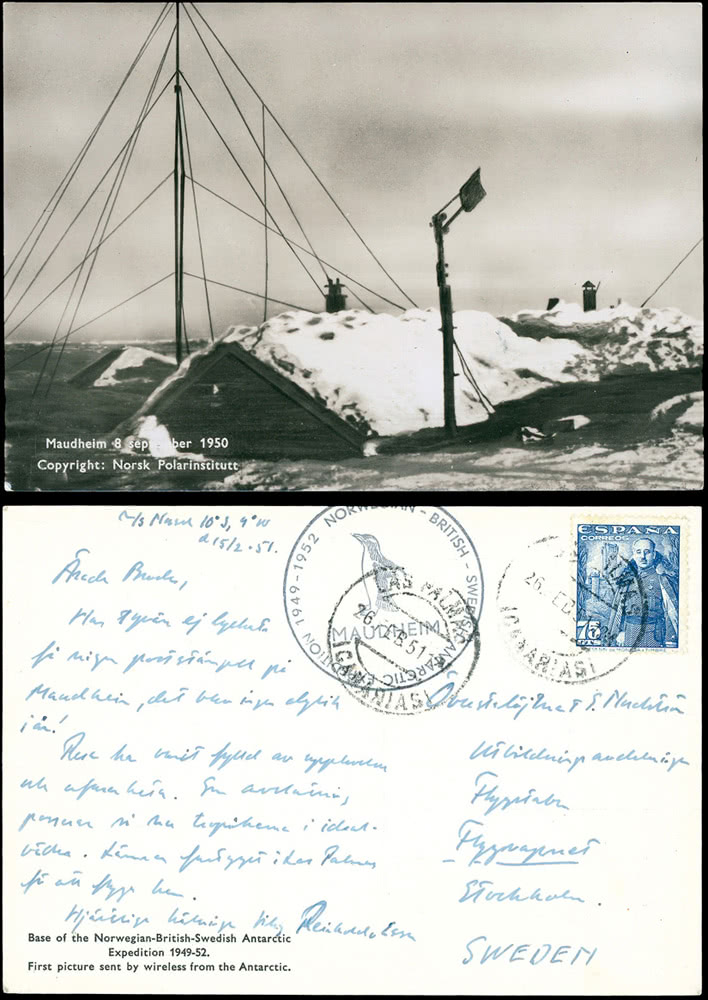 Maudheim 8 september 1950
Copyright: Norsk Polarinstitutt
M/S Norsel 10°S, 4°W
d 15/2-51.
NORWEGIAN-BRITISH-SWEDISH ANTARCTIC EXPEDITION 1949-1952
MAUDHEIM
LAS PALMAS
26 FEB 51
(CANARIAS)
LAS PALMAS
26 FEB
(CANARIAS)
ESPAÑA
CORREOS
75
CTS
Ärade Broder,
Har tyvärr ej lyckats
få någon poststämpel på
Maudheim, det blev ingen
i år!
Resa har varit fylld av upplevelser
och erfarenheter. En
passerar vi nu tropikerna i ideal-
väder. Lämnar fartyget i Las Palmas
för att flyga hem.
Hjärtliga hälsningar Reinhold
Överstelöjtnant
Utbildningsavdelningen
Flygstaben
Flygvapnet
Stockholm.
SWEDEN
Base of the Norwegian-British-Swedish Antarctic
Expedition 1949-52.
First picture sent by wireless from the Antarctic.